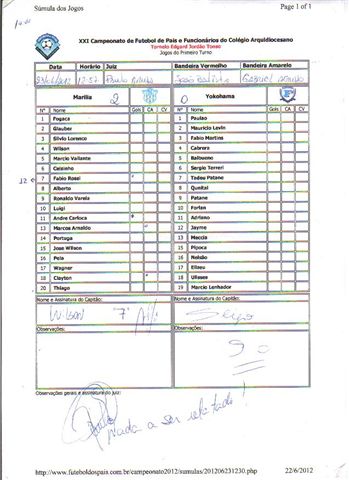 Súmula dos Jogos Page 1 of 1
XXI Campeonato de Futebol de Pais e Funcionários do Colégio Arquidiocesano
Torneio Edgard Jordão Tonso
Jogos do Primeiro Turno
Data Horário Juiz Bandeira Vermelho Bandeira Amarelo
Paulo João Batista Gabriel
Marília 2 0 Yokohama
Nº Nome Gols CA CV Nº Nome Gols CA CV
1 Fogaca 1 Paulao
2 Glauber 2 Mauricio Levin
3 Silvio Lorenco 3 Fabio Martins
4 Wilson 4 Cabrera
5 Marcio Valiante 5 Balbueno
6 Celsinho 6 Sergio Torreri
12 7 Fabio Rossi 7 Tadeu Patane
8 Alberto 8 Qunital
9 Ronaldo Varela 9 Patane
10 Luigi 10 Forlan
11 Andre Carioca 11 Adriano
13 Marcos Arnaldo 12 Jayme
14 Portuga 13 Meccia
15 Jose Wilson 15 Pipoca
16 Pela 16 Nelsão
17 Wagner 17 Eliseu
18 Clayton 18 Ulisses
20 Thiago 19 Marcio Lenhador
Nome e Assinatura do Capitão: Nome e Assinatura do Capitão:
Wilson 7 Sergio
Observações: Observações:
Observações gerais e assinatura do juiz:
Nada a ser relatado!
http://www.futeboldospais.com.br/campeonato2012/sumulas/201206231230.php 22/6/2012